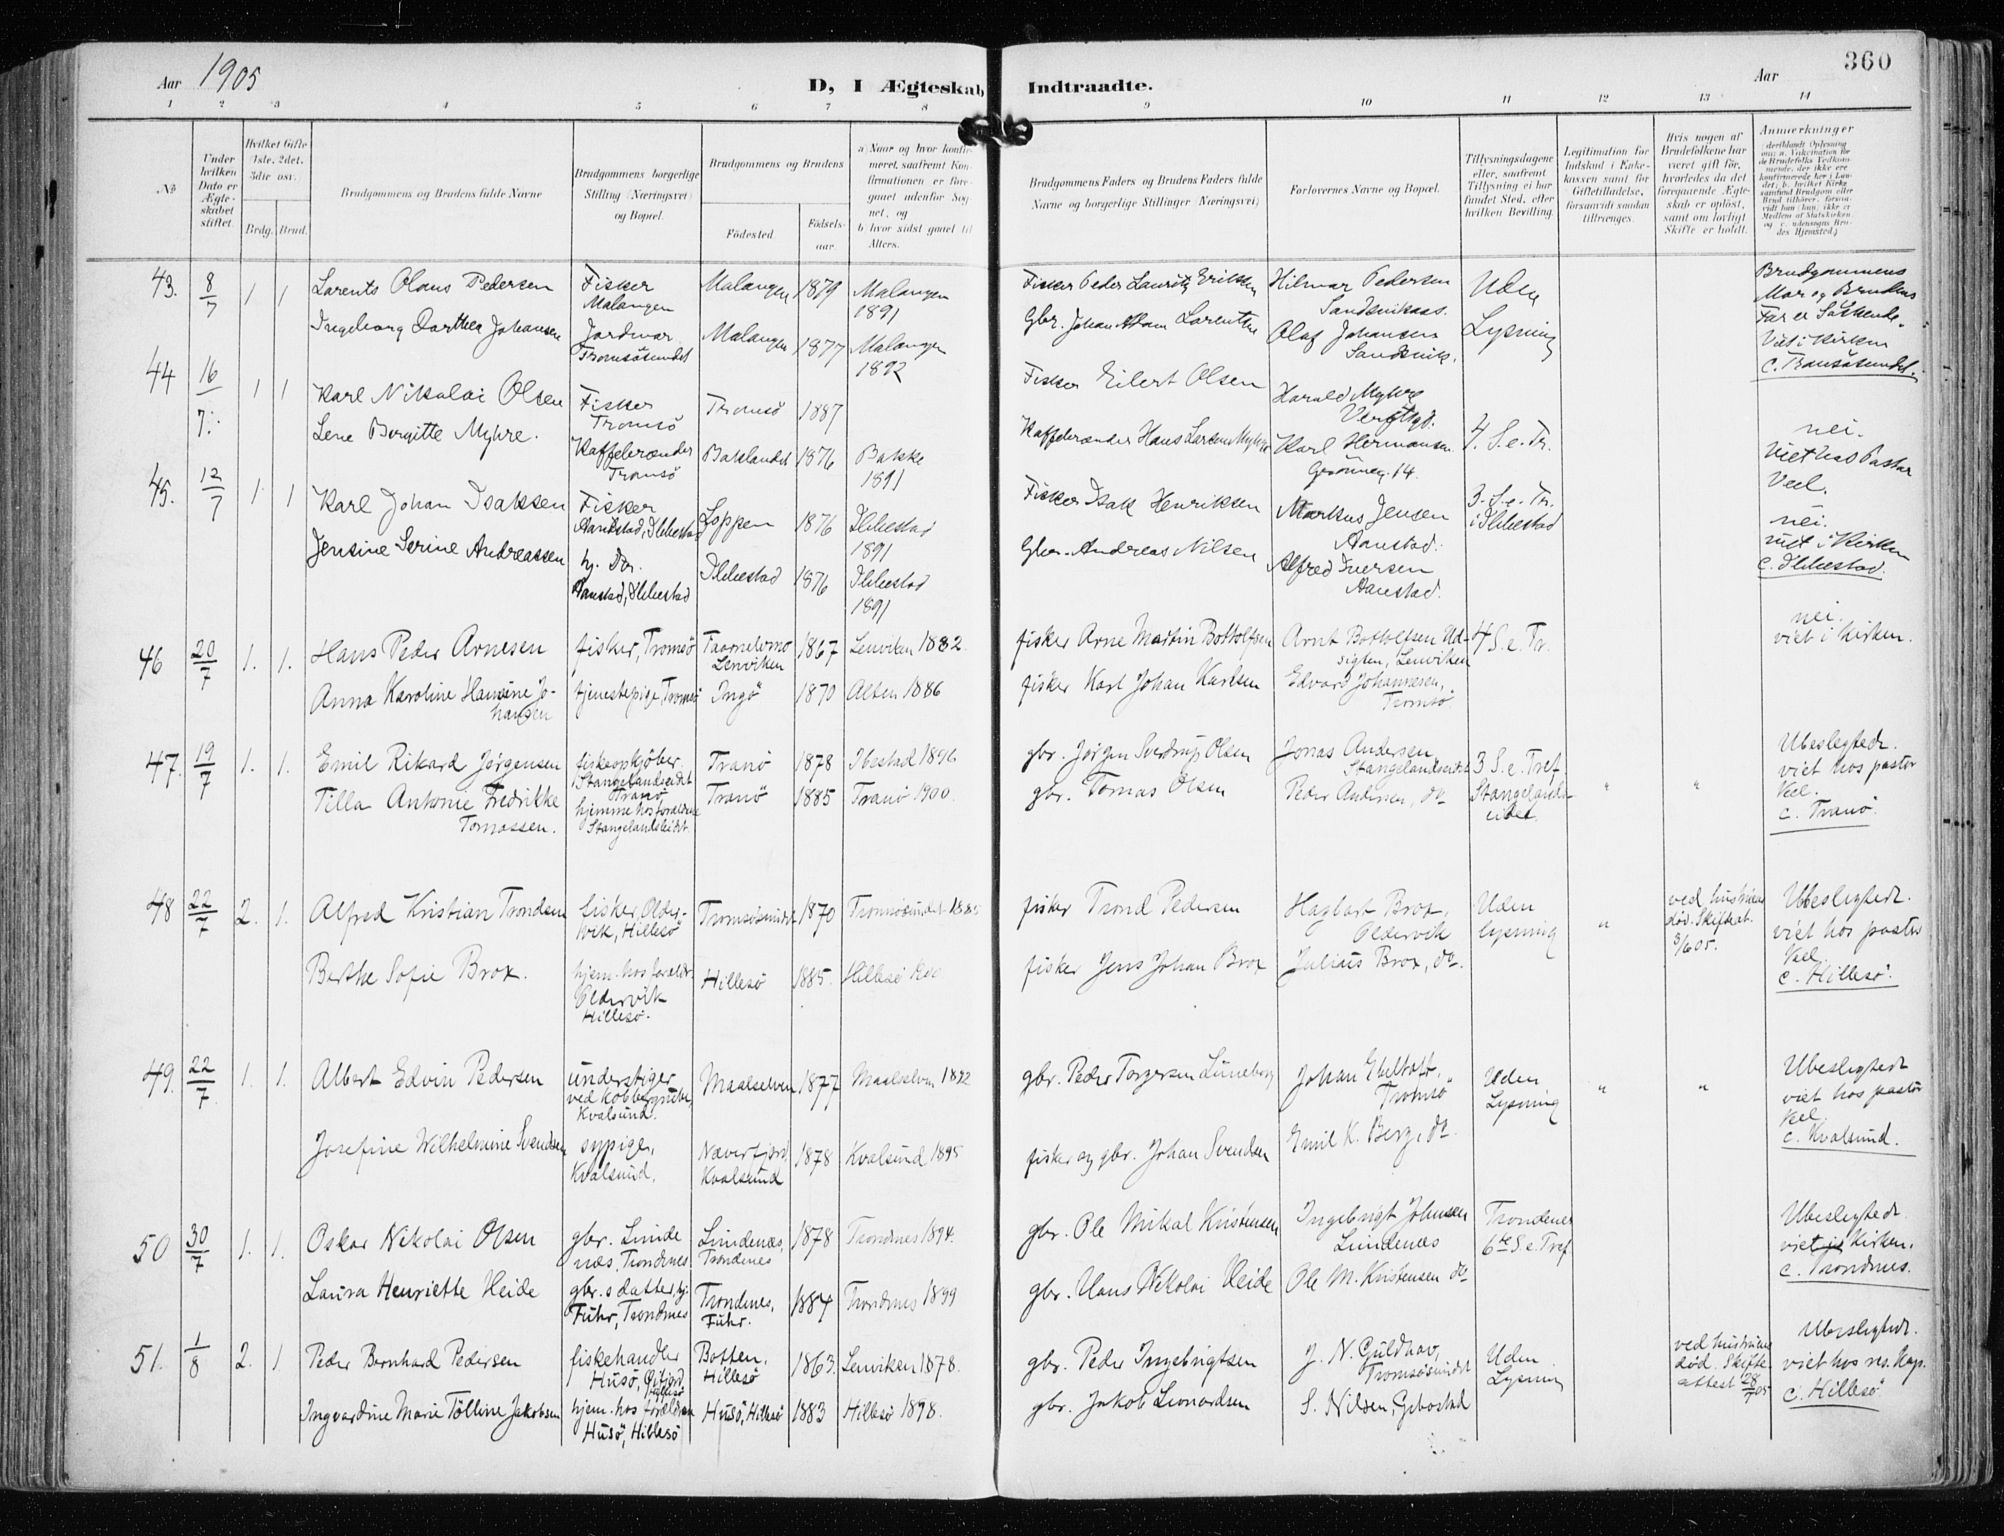 Aar 1905
D, I Ægteskab
Indtraadte.
Aar
360
1 2 3 4 5 6 7 8 9 10 11 12 13 14
No
Under
hvilken
Dato er
Ægte-
skabet
stiftet.
Hvilket Gifte
1ste, 2det,
3die osv.
Brdg. Brud.
Brudgommens og Brudens fulde Navne
Brudgommens borgerlige
Stilling (Næringsvei)
og Bopæl.
Brudgommens og Brudens
Fødested.
Fødsels-
aar.
a) Naar og hvor konfir-
meret, saafremt Kon-
firmationen er fore-
gaaet udenfor Sog-
net, og
b) hvor sidst gaaet til
Alters.
Brudgommens Faders og Brudens Faders fulde
Navne og borgerlige Stillinger (Næringsvei)
Forlovernes Navne og Bopæl.
Tillysningsdagene
eller, saafremt
Tillysning ei har
fundet Sted, efter
hvilken Bevilling.
Legitimation for
Indskud i Enke-
kassen samt for
Giftetilladelse,
forsaavidt saadan
tiltrænges.
Hvis nogen af
Brudefolkene har
været gift før,
hvorledes da det
foregaaende Ægte-
skab er opløst,
samt om lovligt
Skifte er holdt.
Anmærkninger
43. 8/7 1 1
Larents Olaus Pedersen
Ingeborg Dorthea Johansen
Fisker
Malangen
Jordmor
Tromsösundet
Malangen 1879 Malangen
1891
Malangen 1877 Malangen
1892
Fisker Peder Lauritz Eriksen
Gbr. Johan Adam Larenthe
Hilmar Pedersen
Sandsviknes.
Olaf Johansen
Sandsvik.
Uden
Lysning
Brudgommens
Mor og Brudens
Far er Söskende.
Viet i Kirken
C. Tromsösundet.
44 16/7 1 1
Karl Nikolai Olsen
Lene Bergitte Myhre.
Fisker
Tromsö
Kaffebrænder
Tromsö
Tromsö 1887
Baklandet 1876 Bakke
1891
Fisker Eilert Olsen
Kaffebrænder Hans Larsen Myhre
Harald Myhre
Karl Hermansen
Grönneg. 14.
4. S. e. Tr.
nei.
Viet hos Pastor
Veel.
45. 12/7 1 1
Karl Johan Isaksen
Jensine Serine Andreassen
Fisker
Aanstad, Ibbestad
hj. Do.
Aanstad, Ibbestad
Loppen 1876 Ibbestad
1891
Ibbestad 1876 Ibbestad
1891
Fisker Isak Henriksen
Gbr. Andreas Nilsen
Markus Jensen
Aanstad.
Alfred Iversen
Aanstad.
3. S. e. Tr.
i Ibbestad
nei.
viet i Kirken
C. Ibbestad.
46 20/7 1. 1.
Hans Peder Arnesen
Anna Karoline Hansine Jo-
hansen
fisker, Tromsö
tjenestepige, Tromsö
Lenviken 1867 Lenviken 1882.
Ingö 1870 Alten 1886
fisker Arne Martin Bottolfsen
fisker Karl Johan Karlsen
Arnt Bottolfsen Ud-
sigten, Lenviken
Edvard Johannesen,
Tromsö
4 S. e. Tr.
nei.
viet i Kirken.
47. 19/7 1. 1.
Emil Rikard Jørgensen
Tilla Antonie Fredrikke
Tomassen.
fiskeopkjøber.
Stangelandseidet
Tranö
hjemme hos forældrene
Stangelandseidet.
Tranö 1878 Ibestad 1896
Tranö 1885 Tranö 1900.
gbr. Jørgen Sverdrup Olsen
gbr. Tomas Olsen
Jonas Andersen
Stangelandseidet
Peder Andersen, do
3 S. e. Tref.
Stangelands-
eidet.
" "
Ubeslegtede.
viet hos pastor
Veel.
C. Tranö
48 22/7 2. 1.
Alfred Kristian Trondsen
Berthe Sofie Brox.
fisker, Older-
vik, Hillesö
hjem. hos foræld.
Oldervik
Hillesö.
Tromsösundet 1870 Tromsösundet 1885
Hillesö 1885. Hillesö 1900
fisker Trond Pedersen
fisker Jens Johan Brox
Hagbart Brox,
Oldervik
Julius Brox, do.
Uden
lysning
"
ved hustruens
död. Skifteat.
3/6 05.
Ubeslegtede.
viet hos pastor
Veel.
C. Hillesö.
49. 22/7 1. 1.
Albert Edvin Pedersen
Josefine Wilhelmine Svendsen
understiger
ved Kobbergrube,
Kvalsund.
sypige,
Kvalsund.
Maalselven 1877 Maalselven 1892
Næverfjord,
Kvalsund 1878 Kvalsund 1895
gbr. Peder Torgersen Lüneborg
fisker og gbr. Johan Svendsen
Johan Ebeltoft,
Tromsö
Emil K. Berg, do.
Uden
Lysning
" "
Ubeslegtede
viet hos pastor
Veel
C. Kvalsund.
50 30/7 1. 1.
Oskar Nikolai Olsen
Laura Henriette Heide
gbr. Linde
næs, Trondenes
gbr.s datter, hj.
Fuhr, Trondenes
Lindenæs,
Trondenes 1878 Trondnes 1894.
Trondenes,
Fuhr. 1884 Trondnes 1899
gbr. Ole Mikal Kristensen
gbr. Hans Nikolai Heide
Ingebrigt Johnsen
Lundenæs
Ole M. Kristensen do
Trondenes
6te S. e. Tref.
Ubeslegtede.
viet i Kirken.
C. Trondnes.
51. 1/8 2. 1.
Peder Bernhard Pedersen
Ingvardine Marie Tolline Jakobsen
fiskehandler
Husö,
Hillesö
hjem. hos forældrene
Husö, Hillesö
Botten,
Hillesö 1863 Lenviken 1878.
Husö, Hillesö 1883 Hillesö 1898.
gbr. Peder Ingebrigtsen
gbr. Jakob Leonardsen
J. N. Guldhav,
Tromsösundet
S. Nilsen, Gibostad
Uden
Lysning
ved hustruens
död. Skifte-
attest 28/7 05
Ubeslegtede.
viet hos res. Kap.
C. Hillesö